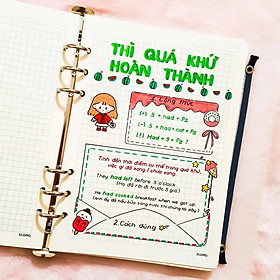 THÌ QUÁ KHỨ
HOÀN THÀNH
1. Công thức
(+) S + had + P2
(-) S + had + not + P2
(?) Had + S + P2 ?
Tính đến một điểm cụ thể trong quá khứ,
việc gì đã xong / chưa xong.
They had left before 5 o'clock.
(Họ đã rời đi trước 5 giờ)
He had cooked breakfast when we got up.
(Anh ấy đã nấu bữa sáng trước khi chúng tôi dậy)
2. Cách dùng
ELONG
ELONG